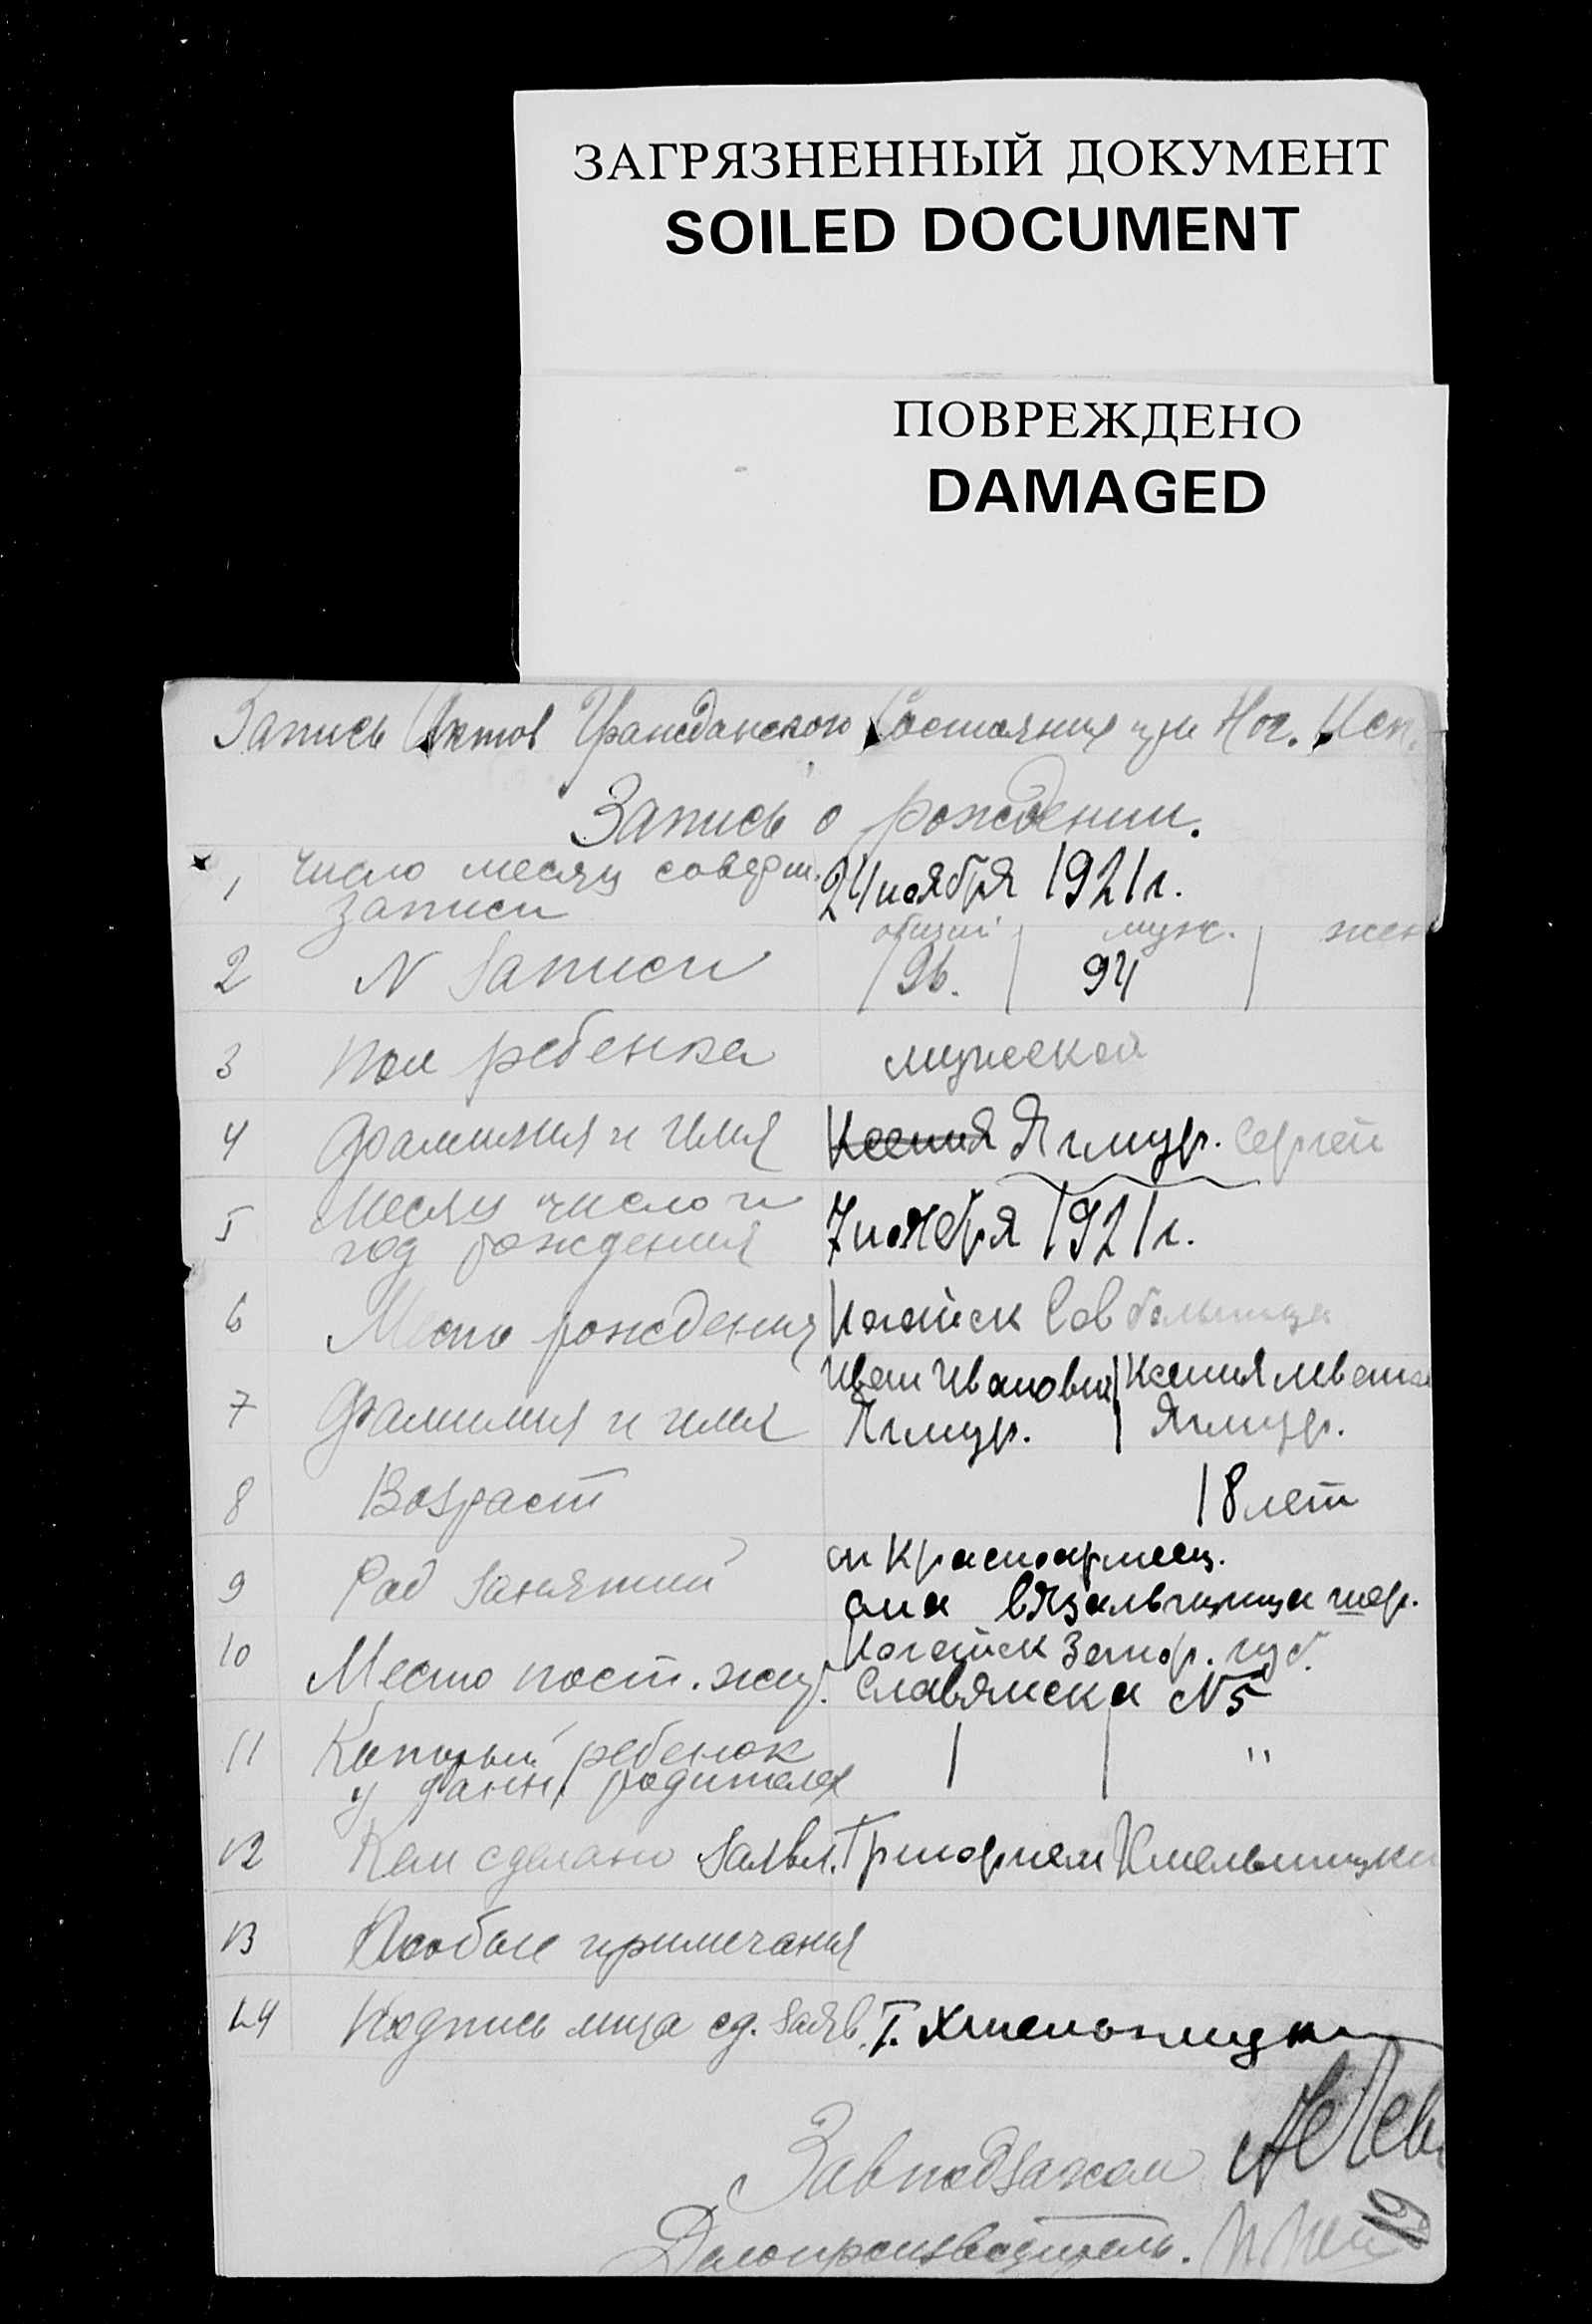 ЗАГРЯЗНЕННЫЙ ДОКУМЕНТ
SOILED DOCUMENT
ПОВРЕЖДЕНО
DAMAGED
Запись Актов Гражданского Состояния при Ног. Исп.
Запись о рождении.
1 число месяц соверш. записи 24 ноября 1921 г.
общий | муж. | жен
2 N записи 196. | 94 |
3 Пол ребенка мужской
4 Фамилия и имя Ксения Ягмур. Сергей
5 Месяц число и год рождения 7 ноября 1921 г.
6 Место рождения Ногайск Сов больница
7 Фамилия и имя Иван Иванович Ягмур. | Ксения Ягмур.
8 Возраст 18 лет
9 Род занятий он красноармеец.
она вязальщица
10 Место пост. жит. Ногайск Запор. губ.
Славянска N 5
11 Который ребенок у данн. родителей | | "
12 Кем сделано заявл. Григорием Хмельницки
13 Особые примечания
14 Подпись лица сд. заяв. Г. Хмельницки
Завподзагсом
Делопроизводитель.
19